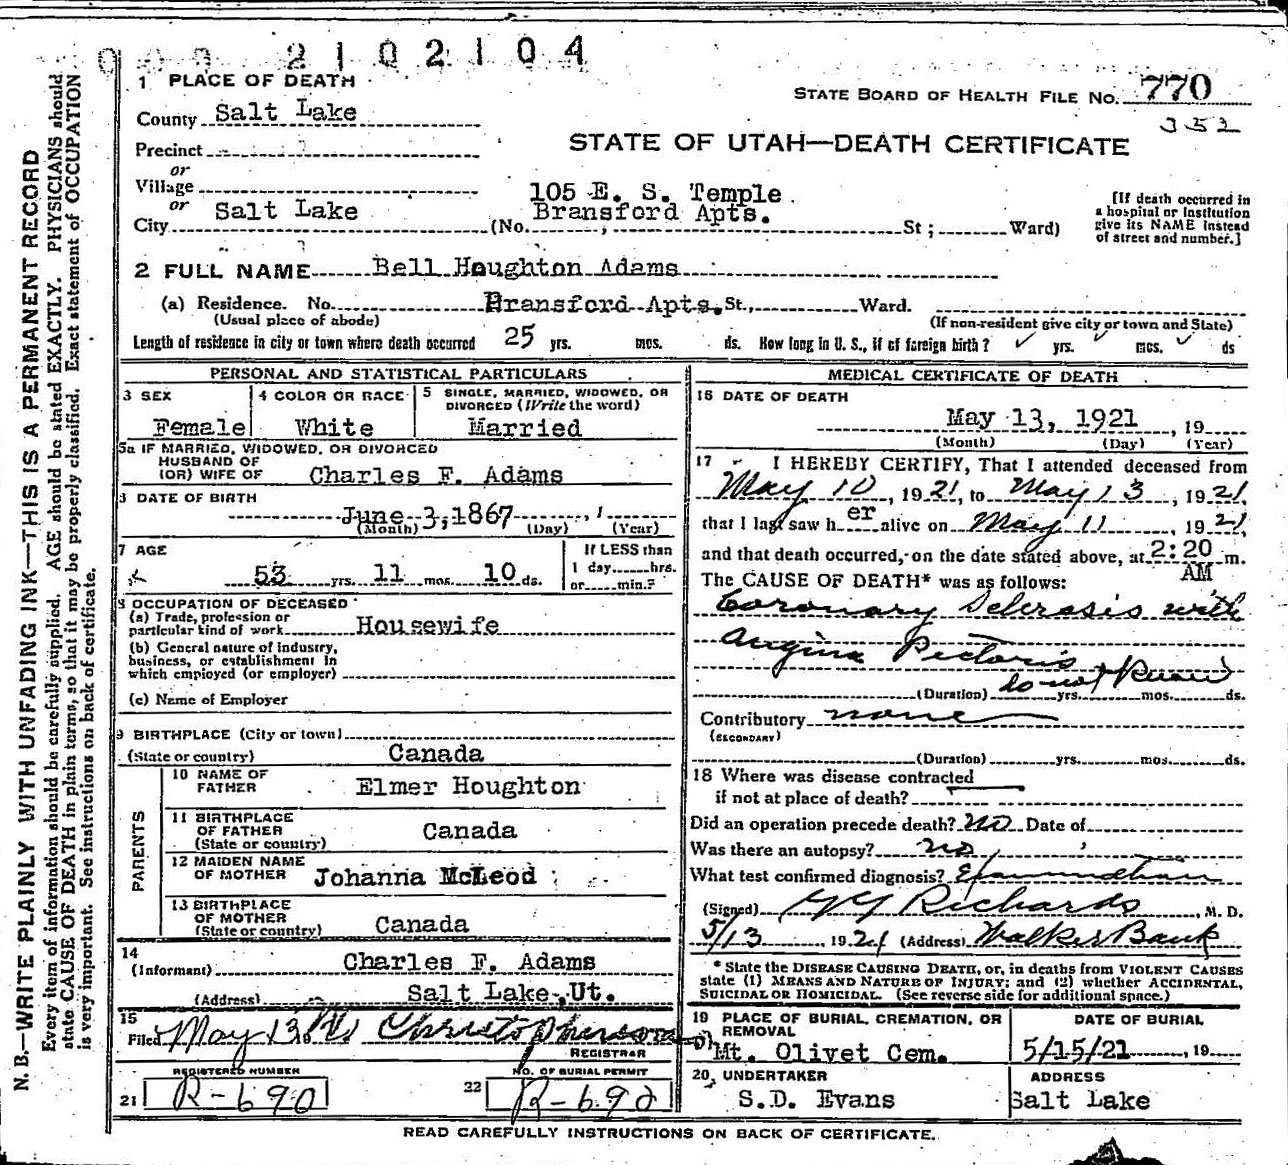 000 2102104
1 PLACE OF DEATH
STATE BOARD OF HEALTH FILE NO. 770
352
County Salt Lake
STATE OF UTAH—DEATH CERTIFICATE
Precinct
or
Village
105 E. S. Temple
or
City Salt Lake (No. Bransford Apts. St; Ward)
[If death occurred in
a hospital or institution
give its NAME instead
of street and number.]
2 FULL NAME Bell Houghton Adams
(a) Residence. No. Bransford Apts. St., Ward.
(Usual place of abode) (If non-resident give city or town and State)
Length of residence in city or town where death occurred 25 yrs. mos. ds. How long in U. S., if of foreign birth? yrs. mos. ds
PERSONAL AND STATISTICAL PARTICULARS
3 SEX
Female
4 COLOR OR RACE
White
5 SINGLE, MARRIED, WIDOWED, OR
DIVORCED (Write the word)
Married
5a IF MARRIED, WIDOWED, OR DIVORCED
HUSBAND OF
(OR) WIFE OF Charles F. Adams
DATE OF BIRTH
June 3, 1867
(Month) (Day) (Year)
7 AGE
53 yrs. 11 mos. 10 ds.
If LESS than
1 day hrs.
or min.?
OCCUPATION OF DECEASED
(a) Trade, profession or
particular kind of work Housewife
(b) General nature of industry,
business, or establishment in
which employed (or employer)
(c) Name of Employer
9 BIRTHPLACE (City or town)
(State or country) Canada
PARENTS
10 NAME OF
FATHER Elmer Houghton
11 BIRTHPLACE
OF FATHER
(State or country) Canada
12 MAIDEN NAME
OF MOTHER Johanna McLeod
13 BIRTHPLACE
OF MOTHER
(State or country) Canada
14
(Informant) Charles F. Adams
(Address) Salt Lake, Ut.
15
Filed May 13 Christopherson
REGISTRAR
REGISTERED NUMBER
21 R-690
NO. OF BURIAL PERMIT
22 R-692
MEDICAL CERTIFICATE OF DEATH
16 DATE OF DEATH
May 13, 1921, 19
(Month) (Day) (Year)
17 I HEREBY CERTIFY, That I attended deceased from
May 10, 1921, to May 13, 1921,
that I last saw her alive on May 11 1921,
and that death occurred, on the date stated above, at 2:20 m.
AM
The CAUSE OF DEATH* was as follows:
Coronary Sclerosis with
Angina Pectoris
(Duration) do not know yrs. mos. ds.
Contributory none
(SECONDARY)
(Duration) yrs. mos. ds.
18 Where was disease contracted
if not at place of death?
Did an operation precede death? No Date of
Was there an autopsy? no
What test confirmed diagnosis? Examination
(Signed) GG Richards, M. D.
5/13, 1921 (Address) Walker Bank
* State the DISEASE CAUSING DEATH, or, in deaths from VIOLENT CAUSES
state (1) MEANS AND NATURE OF INJURY; and (2) whether ACCIDENTAL,
SUICIDAL OR HOMICIDAL. (See reverse side for additional space.)
19 PLACE OF BURIAL, CREMATION, OR
REMOVAL
Mt. Olivet Cem.
DATE OF BURIAL
5/15/21, 19
20 UNDERTAKER
S.D. Evans
ADDRESS
Salt Lake
READ CAREFULLY INSTRUCTIONS ON BACK OF CERTIFICATE.
N. B.—WRITE PLAINLY WITH UNFADING INK—THIS IS A PERMANENT RECORD
Every item of information should be carefully supplied. AGE should be stated EXACTLY. PHYSICIANS should
state CAUSE OF DEATH in plain terms, so that it may be properly classified. Exact statement of OCCUPATION
is very important. See instructions on back of certificate.